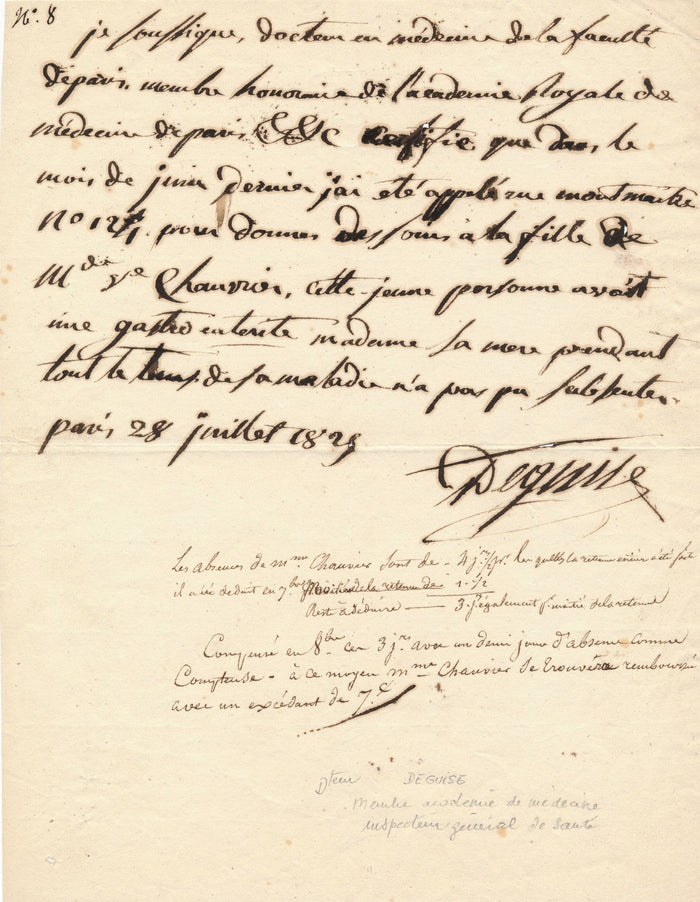 N°. 8
je soussigné, docteur en médecine de la faculté
de paris, membre honoraire de l'academie Royale de
médecine de paris certifie que dans le
mois de juin dernier j'ai eté appelé rue montmartre
N° 124 pour donner des soins à la fille de
M de ve Chauvrier, cette jeune personne avait
une gastro enterite madame sa mere pendant
tout le temps de sa maladie n'a pas pu
paris 28 juillet 1829
Deguise
Les absences de mme Chauvier sont de - 4 jrs 1/2 la retenue a été fait
il a été déduit en 7bre Moitié de la retenue de 1. 1/2
Reste à déduire — 3. également moitié de la retenue
Compensé en 8bre ces 3 jrs avec un demi jour d'absence comme
Compteuse - à ce moyen mme Chauvier se trouvera remboursée
avec un excédant de 7.c
Dteur DEGUISE
Membre academie de médecine
inspecteur général de santé